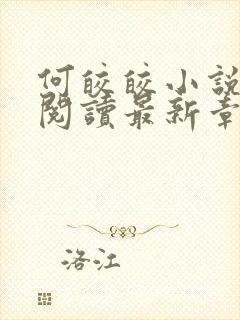 何皎皎小說
閱讀最新章
洛江